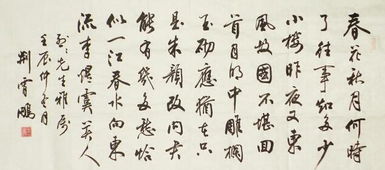 春花秋月何時
了往事知多少
小樓昨夜又東
風故國不堪回
首月明中雕欄
玉砌應猶在只
是朱顏改問君
能有幾多愁恰
似一江春水向東
流李煜虞美人
先生雅屬
壬辰仲月
荆霄鵬